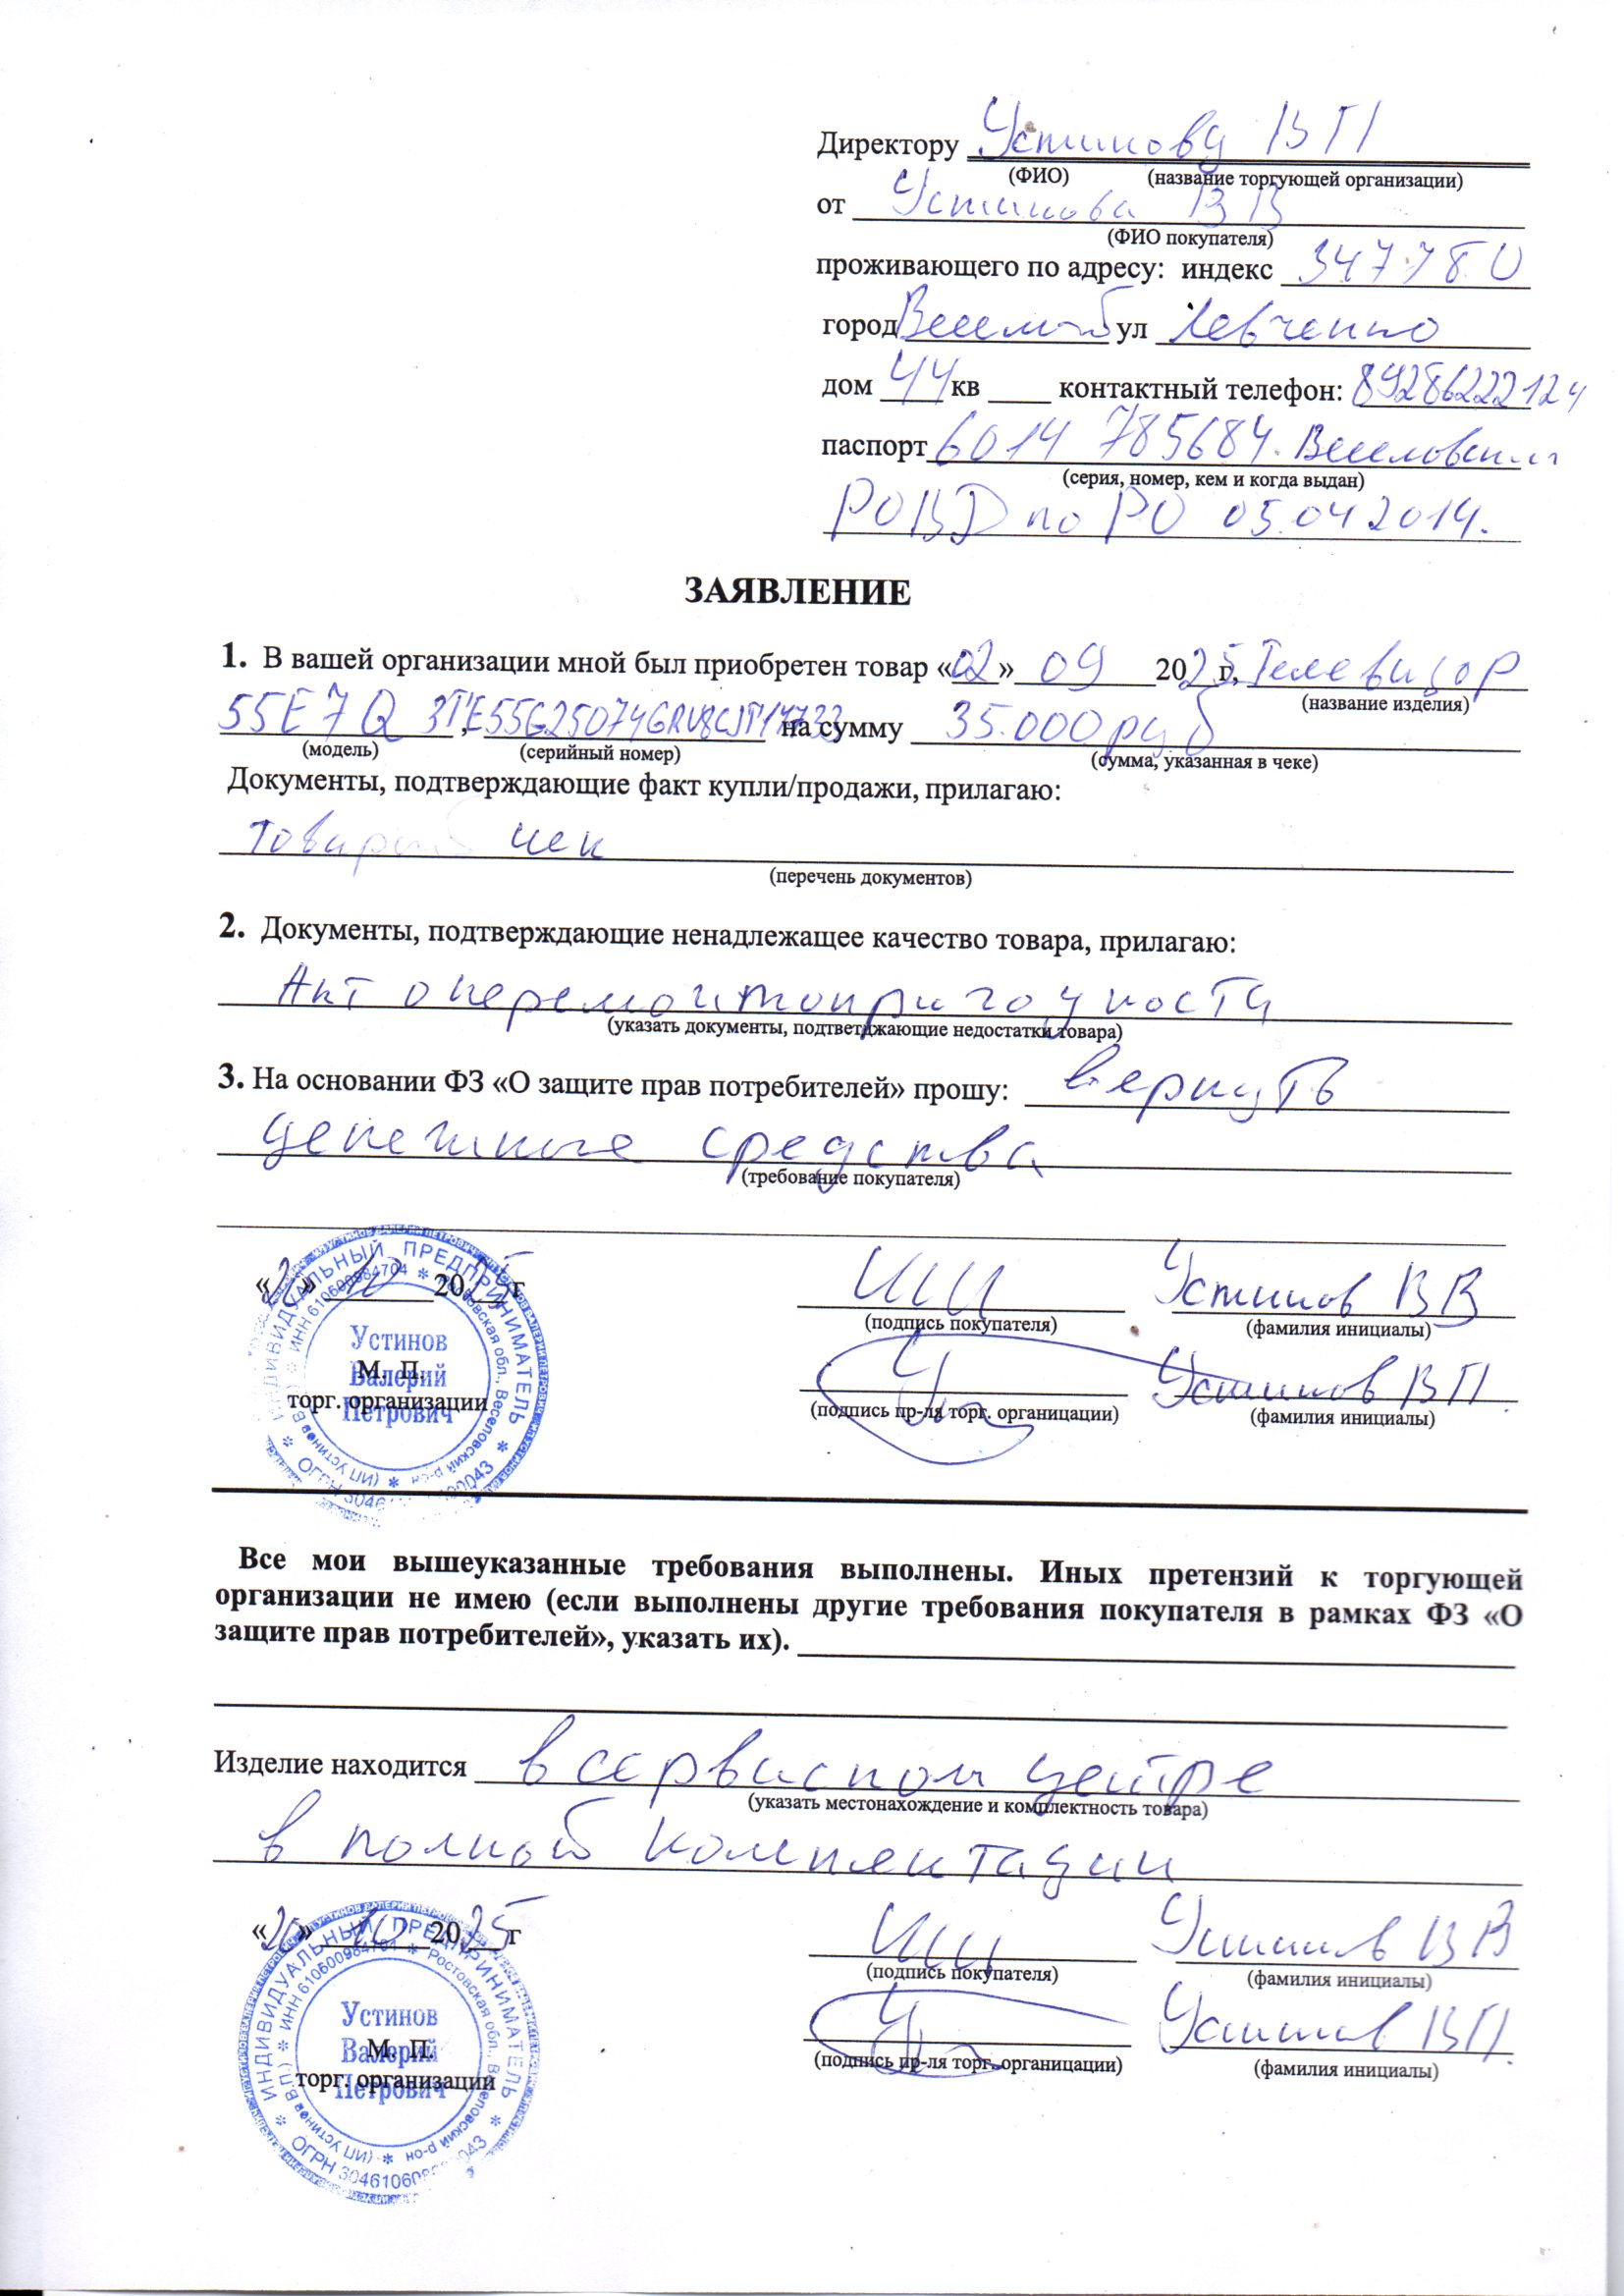 Директору Устинову ВП
(ФИО) (название торгующей организации)
от Устинова ВВ
(ФИО покупателя)
проживающего по адресу: индекс 347780
город Веселый ул Левченко
дом 44 кв ____ контактный телефон: 89286222124
паспорт 6014 785684 Веселовским
(серия, номер, кем и когда выдан)
РОВД по РО 05.04 2014.
ЗАЯВЛЕНИЕ
1. В вашей организации мной был приобретен товар «02» 09 2025 г, Телевизор
(название изделия)
55E7Q , 3TE55G25074GRV8CJT14733 на сумму 35.000 руб
(модель) (серийный номер) (сумма, указанная в чеке)
Документы, подтверждающие факт купли/продажи, прилагаю:
товарный чек
(перечень документов)
2. Документы, подтверждающие ненадлежащее качество товара, прилагаю:
Акт о неремонтопригодности
(указать документы, подтветджающие недостатки товара)
3. На основании ФЗ «О защите прав потребителей» прошу: вернуть
денежные средства
(требование покупателя)
«20» 10 2025 г Устинов ВВ
(подпись покупателя) (фамилия инициалы)
ИНДИВИДУАЛЬНЫЙ ПРЕДПРИНИМАТЕЛЬ
ИНН 610600984704 * Ростовская обл., Веселовский р-он * (ИП Устинов В.П.)
Устинов
Валерий
Петрович
М. П.
торг. организации
Устинов ВП.
(подпись пр-ля торг. органицации) (фамилия инициалы)
Все мои вышеуказанные требования выполнены. Иных претензий к торгующей
организации не имею (если выполнены другие требования покупателя в рамках ФЗ «О
защите прав потребителей», указать их).
Изделие находится в сервисном центре
(указать местонахождение и комплектность товара)
в полной комплектации
«20» 10 2025 г Устинов ВВ
(подпись покупателя) (фамилия инициалы)
ИНДИВИДУАЛЬНЫЙ ПРЕДПРИНИМАТЕЛЬ
ИНН 610600984704 * Ростовская обл., Веселовский р-он * (ИП Устинов В.П.)
Устинов
Валерий
Петрович
М. П.
торг. организации
Устинов ВП.
(подпись пр-ля торг. органицации) (фамилия инициалы)